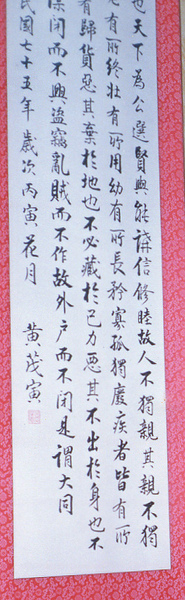 也天下為公選賢與能講信修睦故人不獨親其親不獨
有所終壯有所用幼有所長矜寡孤獨廢疾者皆有所
有歸貨惡其棄於地也不必藏於己力惡其不出於身也不
閉而不興盜竊亂賊而不作故外戶而不閉是謂大同
民國七十五年歲次丙寅花月
黃茂寅